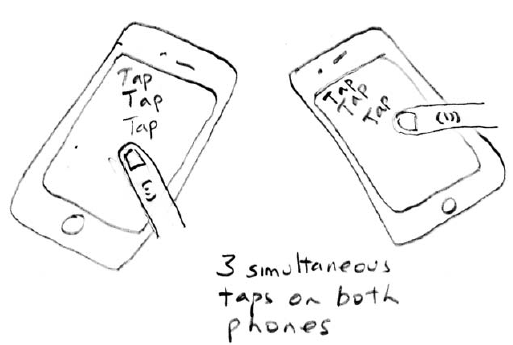 Tap
Tap
Tap
Tap
Tap
Tap
3 simultaneous
taps on both
phones